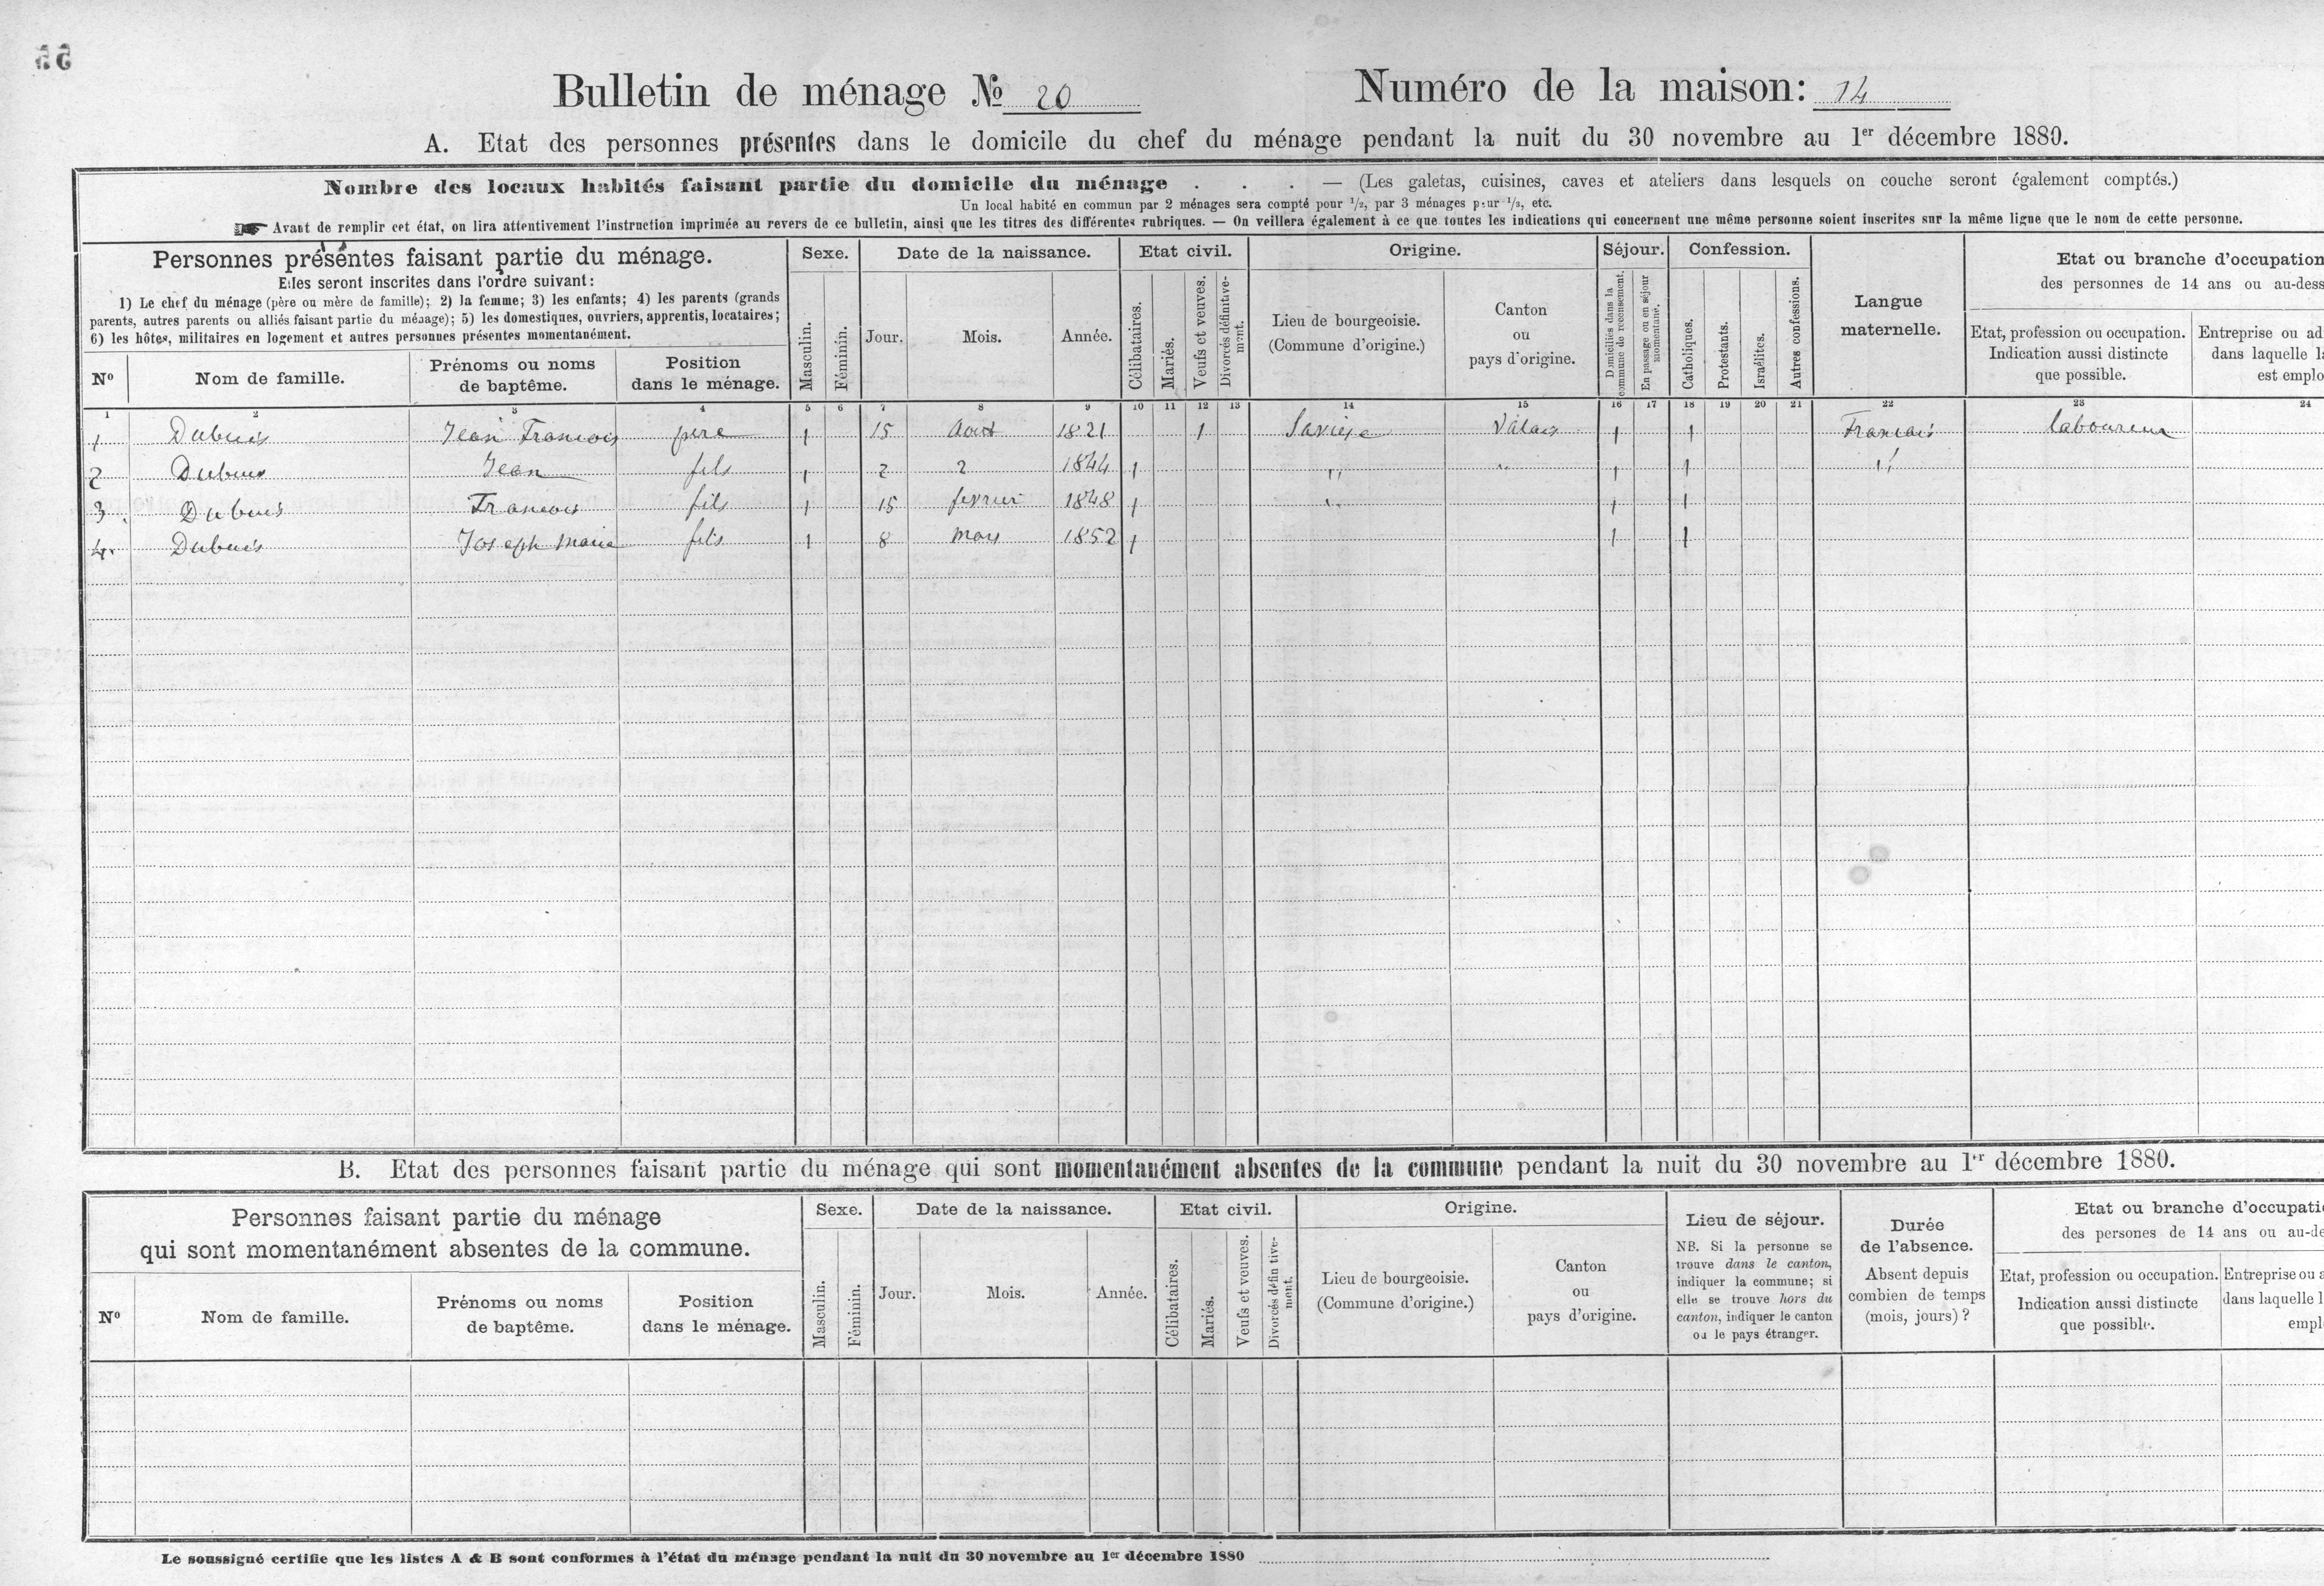 55
Bulletin de ménage № 20 Numéro de la maison: 14
A. Etat des personnes présentes dans le domicile du chef du ménage pendant la nuit du 30 novembre au 1er décembre 1880.
Nombre des locaux habités faisant partie du domicile du ménage . . . — (Les galetas, cuisines, caves et ateliers dans lesquels on couche seront également comptés.)
Un local habité en commun par 2 ménages sera compté pour 1/2, par 3 ménages pour 1/3, etc.
Avant de remplir cet état, on lira attentivement l'instruction imprimée au revers de ce bulletin, ainsi que les titres des différentes rubriques. — On veillera également à ce que toutes les indications qui concernent une même personne soient inscrites sur la même ligne que le nom de cette personne.
Personnes présentes faisant partie du ménage.
Elles seront inscrites dans l'ordre suivant:
1) Le chef du ménage (père ou mère de famille); 2) la femme; 3) les enfants; 4) les parents (grands
parents, autres parents ou alliés faisant partie du ménage); 5) les domestiques, ouvriers, apprentis, locataires;
6) les hôtes, militaires en logement et autres personnes présentes momentanément.
Nº
Nom de famille.
Prénoms ou noms
de baptême.
Position
dans le ménage.
Sexe.
Masculin.
Féminin.
Date de la naissance.
Jour.
Mois.
Année.
Etat civil.
Célibataires.
Mariés.
Veufs et veuves.
Divorcés définitive-
ment.
Origine.
Lieu de bourgeoisie.
(Commune d'origine.)
Canton
ou
pays d'origine.
Séjour.
Domiciliés dans la
commune de recensement.
En passage ou en séjour
momentané.
Confession.
Catholiques.
Protestants.
Israélites.
Autres confessions.
Langue
maternelle.
Etat ou branche d'occupation
des personnes de 14 ans ou au-dess
Etat, profession ou occupation.
Indication aussi distincte
que possible.
Entreprise ou ad
dans laquelle la
est emplo
1 2 3 4 5 6 7 8 9 10 11 12 13 14 15 16 17 18 19 20 21 22 23 24
1 Dubuis Jean Francois pere 1 15 Aout 1821 1 Savièse Valais 1 1 Francais laboureur
2 Dubuis Jean fils 1 2 2 1844 1 " " 1 1 "
3 Dubuis Francois fils 1 15 fevrier 1848 1 " 1 1
4 Dubuis Joseph Marie fils 1 8 mars 1852 1 1 1
B. Etat des personnes faisant partie du ménage qui sont momentanément absentes de la commune pendant la nuit du 30 novembre au 1er décembre 1880.
Personnes faisant partie du ménage
qui sont momentanément absentes de la commune.
Nº
Nom de famille.
Prénoms ou noms
de baptême.
Position
dans le ménage.
Sexe.
Masculin.
Féminin.
Date de la naissance.
Jour.
Mois.
Année.
Etat civil.
Célibataires.
Mariés.
Veufs et veuves.
Divorcés définitive-
ment.
Origine.
Lieu de bourgeoisie.
(Commune d'origine.)
Canton
ou
pays d'origine.
Lieu de séjour.
NB. Si la personne se
trouve dans le canton,
indiquer la commune; si
elle se trouve hors du
canton, indiquer le canton
ou le pays étranger.
Durée
de l'absence.
Absent depuis
combien de temps
(mois, jours)?
Etat ou branche d'occupati
des persones de 14 ans ou au-de
Etat, profession ou occupation.
Indication aussi distincte
que possible.
Entreprise ou a
dans laquelle l
empl
Le soussigné certifie que les listes A & B sont conformes à l'état du ménage pendant la nuit du 30 novembre au 1er décembre 1880